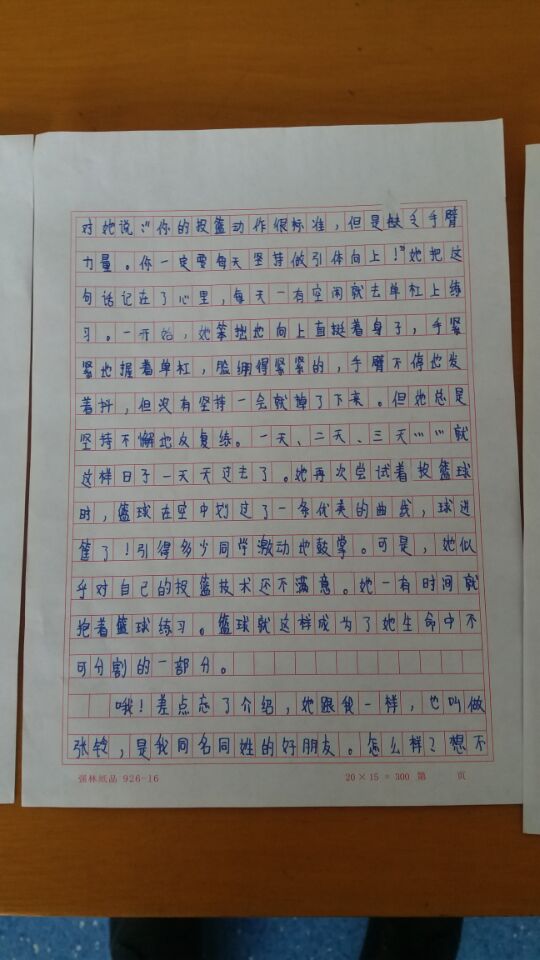 对她说:“你的投篮动作很标准,但是缺乏手臂
力量。你一定要每天坚持做引体向上!”她把这
句话记在了心里,每天一有空闲就去单杠上练
习。一开始,她笨拙地向上直挺着身子,手紧
紧地握着单杠,脸绷得紧紧的,手臂不停地发
着抖,但没有坚持一会就掉了下来。但她总是
坚持不懈地反复练。一天、二天、三天……就
这样日子一天天过去了。她再次尝试着投篮球
时,篮球在空中划过了一条优美的曲线,球进
筐了!引得多少同学激动地鼓掌。可是,她似
乎对自己的投篮技术还不满意。她一有时间就
抱着篮球练习。篮球就这样成为了她生命中不
可分割的一部分。
哦!差点忘了介绍,她跟我一样,也叫做
张铃,是我同名同姓的好朋友。怎么样?想不
强林纸品 926-16 20×15=300 第 页